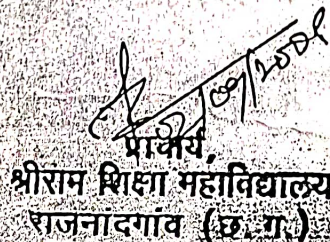 प्राचार्य,
श्रीराम शिक्षा महाविद्यालय
राजनांदगांव (छ. ग.)